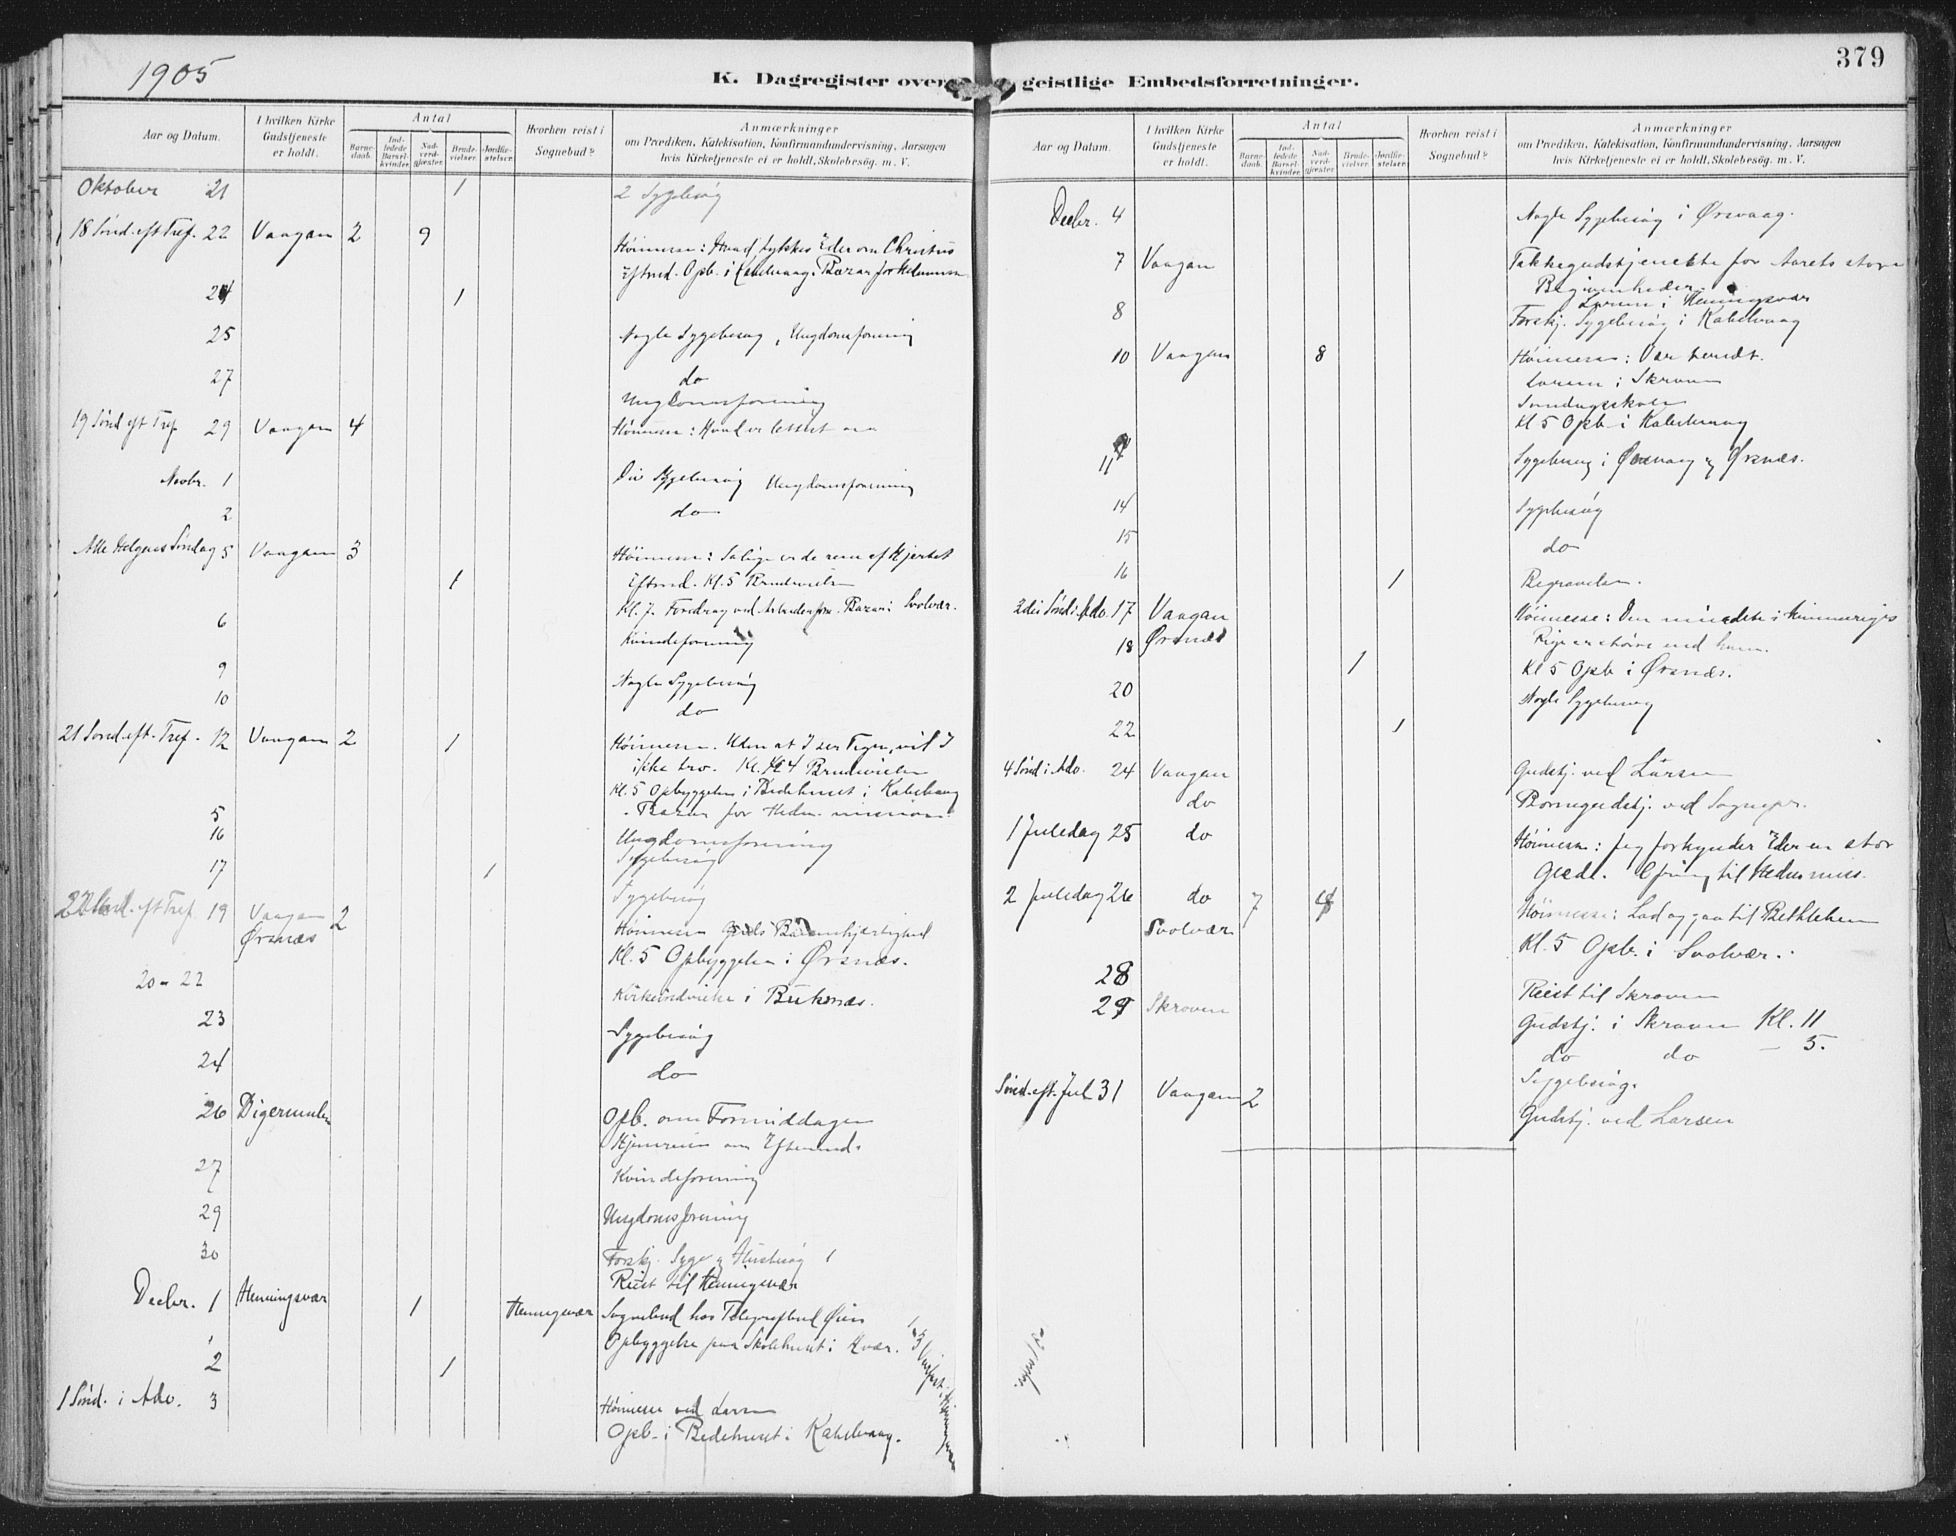 1905
K. Dagregister over geistlige Embedsforretninger.
379
Aar og Datum.
I hvilken Kirke Gudstjeneste er holdt.
Antal
Barnedaab.
Indledede Barselkvinder.
Nadverdgjester.
Brudevielser.
Jordfæstelser.
Hvorhen reist i Sognebud?
Anmærkninger
om Prædiken, Katekisation, Konfirmandundervisning, Aarsagen
hvis Kirketjeneste ei er holdt, Skolebesøg. m. V.
Oktober 21 1 2 Sygebesøg
18 Sønd. eft Tref. 22 Vaagan 2 9
Høimesse: Hvad tykkes Eder om Christus
Eftmd. Opb. i Kabelvaag. Bazar for
24 1
25 Nogle Sygebesøg, Ungdomsforening
27 do
Ungdomsforening
19 Sønd eft Tref. 29 Vaagan 4 Høimesse: Hvad er lettest
Novbr. 1 Div Sygebesøg Ungdomsforening
2 do
Alle Helgens Søndag 5 Vaagan 3 Høimesse: Salige er de rene af Hjertet
1 Eftmd. Kl. 5 Brudevielse
Kl. 7. Foredrag ved Arbeiderfor. Bazar i Svolvær.
6 Kvindeforening
9 Nogle Sygebesøg
10 do
21 Sønd. eft. Tref. 12 Vaagan 2 1 Høimesse. Uden at I ser Tegn, vil I
ikke tro. Kl. 4 Brudevielse
Kl. 5 Opbyggelse i Bedehuset i Kabelvaag
5 Bazar for Hedn. mission
16 Ungdomsforening
Sygebesøg
17 1
Sygebesøg
22 Sønd. eft Tref. 19 Vaagan 2 Høimesse Guds Barmhjertighed
Ørsnæs Kl. 5 Opbyggelse i Ørsnæs.
20 - 22 Kirkeindvielse i Buksnæs.
23 Sygebesøg
24 do
26 Digermulen Opb. om Formiddagen
Hjemreise om Eftermd.
27 Kvindeforening
29 Ungdomsforening
30 Forskj. Syge og Husbesøg 1
Reist til Henningsvær
Decbr. 1 Henningsvær 1 Henningsvær Sognebud hos Telegrafbud
Opbyggelse paa Skolehuset i Hvær.
2 1
1 Sønd. i Adv. 3 Høimesse ved Larsen
Opb. i Bedehuset i Kabelvaag.
Aar og Datum.
I hvilken Kirke Gudstjeneste er holdt.
Antal
Barnedaab.
Indledede Barselkvinder.
Nadverdgjester.
Brudevielser.
Jordfæstelser.
Hvorhen reist i Sognebud?
Anmærkninger
om Prædiken, Katekisation, Konfirmandundervisning, Aarsagen
hvis Kirketjeneste ei er holdt, Skolebesøg. m. V.
Decbr. 4 Nogle Sygebesøg i Ørsvaag.
7 Vaagan Takkegudstjeneste for Aarets store
Begivenheder.
i Henningsvær
8 Forskj. Sygebesøg i Kabelvaag
10 Vaagan 8 Høimesse: Vær beredt.
Larsen i Skroven
Søndagsskole
Kl 5 Opb. i Kabelvaag
11 Sygebesøg i Ørsvaag og Ørsnæs.
14 Sygebesøg
15 do
16 1 Begravelse.
2die Sønd i Adv. 17 Vaagan Høimesse: Den mindste i Himmeriges
Rige er større end han.
18 Ørsnæs 1 Kl 5 Opb i Ørsnæs.
20 Nogle Sygebesøg
22 1
4 Sønd i Adv. 24 Vaagan Gudstj. ved Larsen
do Børnegudstj. ved Sognepr.
1 Juledag 25 do Høimesse: Jeg forkynder Eder en stor
Glæde. Ofring til Hedn.miss.
2 Juledag 26 do 7 Høimesse: Lad og gaa til Bethlehem
Svolvær Kl. 5 Opb. i Svolvær.
28 Reist til Skroven
29 Skroven Gudstj. i Skroven Kl. 11
do do - 5.
Sygebesøg.
Sønd. eft. Jul 31 Vaagan 2 Gudstj. ved Larsen